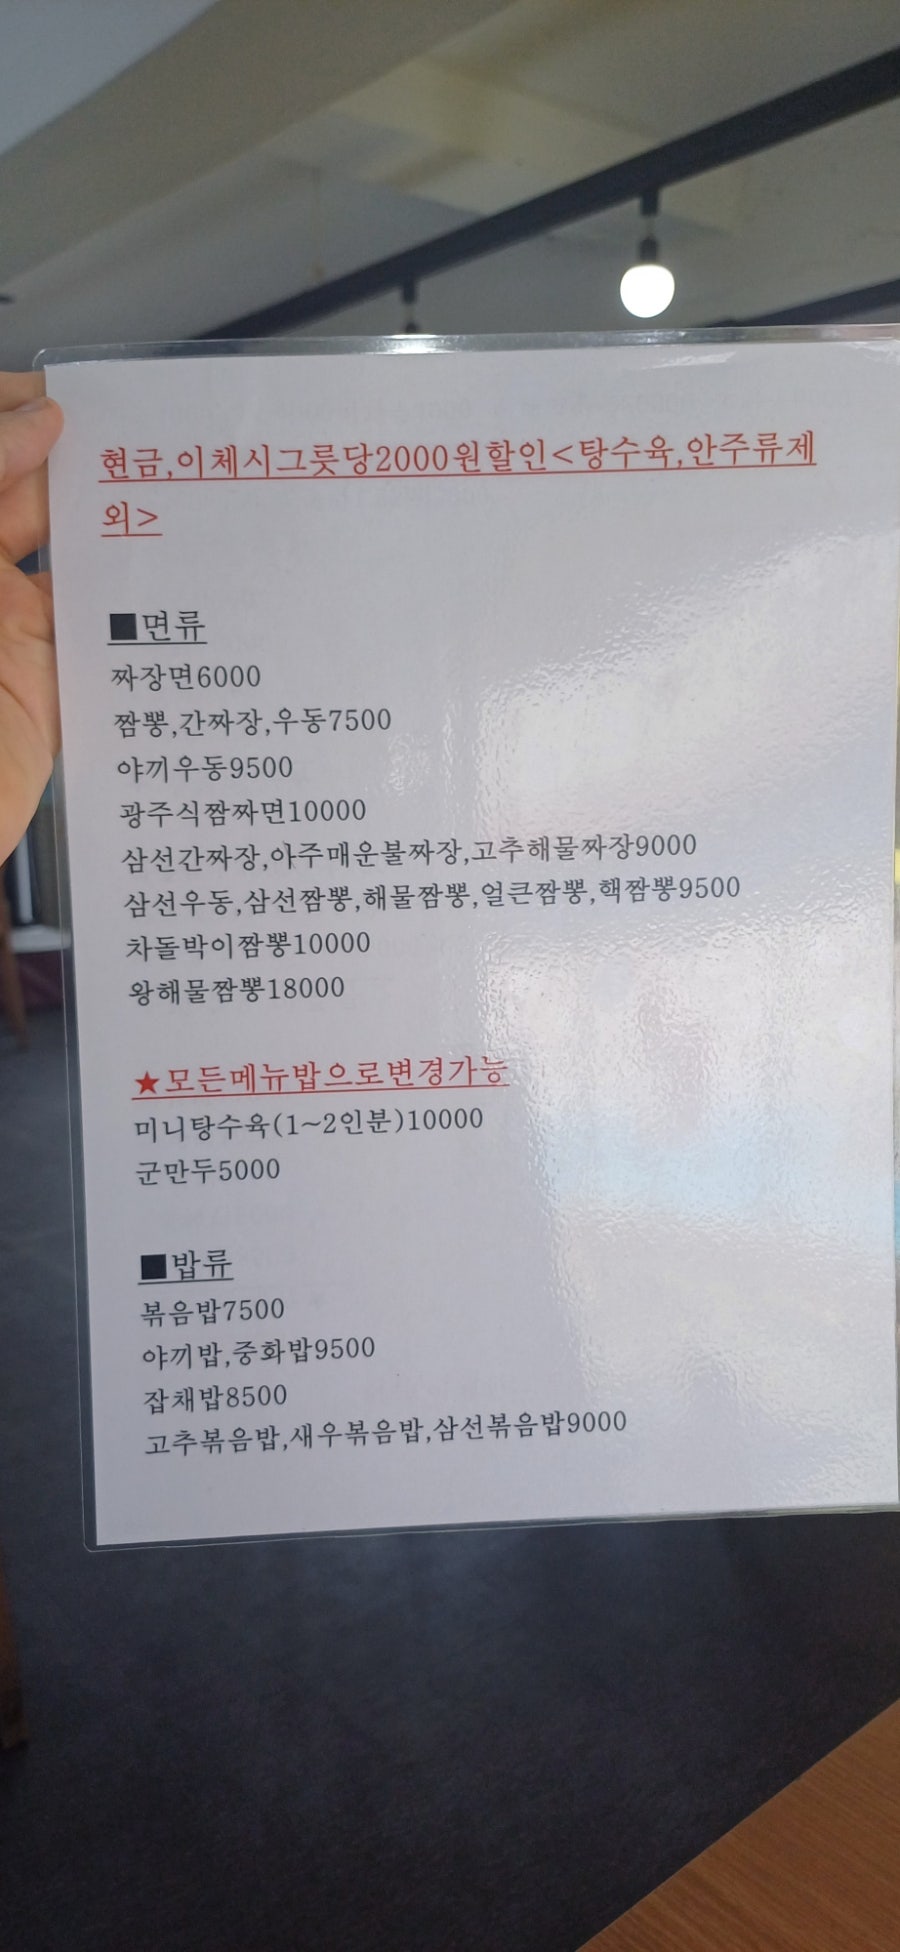 현금,이체시그릇당2000원할인<탕수육,안주류제
외>
■면류
짜장면6000
짬뽕,간짜장,우동7500
야끼우동9500
광주식짬짜면10000
삼선간짜장,아주매운불짜장,고추해물짜장9000
삼선우동,삼선짬뽕,해물짬뽕,얼큰짬뽕,핵짬뽕9500
차돌박이짬뽕10000
왕해물짬뽕18000
★모든메뉴밥으로변경가능
미니탕수육(1~2인분)10000
군만두5000
■밥류
볶음밥7500
야끼밥,중화밥9500
잡채밥8500
고추볶음밥,새우볶음밥,삼선볶음밥9000